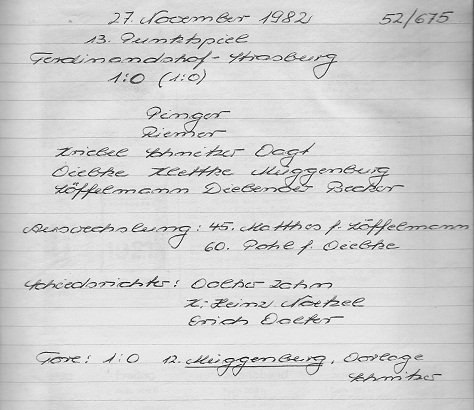 27. November 1982 52/675
13. Punktspiel
Ferdinandshof - Strasburg
1:0 (1:0)
Pinger
Riemer
Kriebel Schnitzer Vagt
Dietke Klettke Müggenburg
Löffelmann Diebender Becker
Auswechslung: 45. Matthes f. Löffelmann
60. Pohl f.
Schiedsrichter: Volker Jahn
K. Heinz Noetzel
Erich Volter
Tore: 1:0 12. Müggenburg, Vorlage
Schnitzer